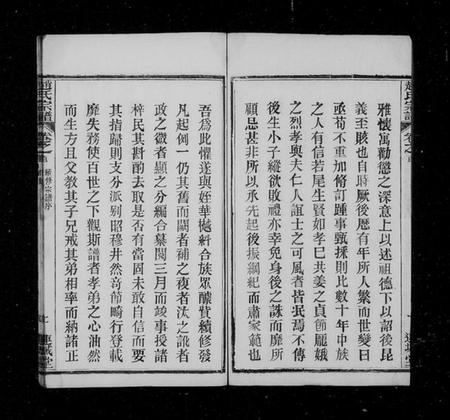 雅懷寓勸懲之深意上以述祖德下以詔後昆
義至賅也自時厥後歷有年所人繁而世變日
亟苟不重加脩訂踵事甄採則比數十年中族
之人有信若尾生賢如孝巳共姜之貞節龐娥
之烈孝與夫仁人誼士之可風者皆泯焉不傳
後生小子縱欲敗禮亦幸免身後之誅而靡所
顧忌甚非所以承先起後振綱紀而肅家範也
趙氏宗譜
吾為此懼遂與姪華撼紏合族眾醵貲續修發
凡起例一仍其舊而闕者補之夜者汰之訛者
政之微者顯之分編合纂閱三月而竣事授諸
梓民其斟酌去取是否有當固未敢自信而要
其指歸則支分派别昭穆井然奇節畸行登載
靡失務使百世之下觀斯譜者孝弟之心油然
而生方且父敎其子兄戒其弟相率而納諸正
趙氏宗譜
卷之首
續修宗譜序
七